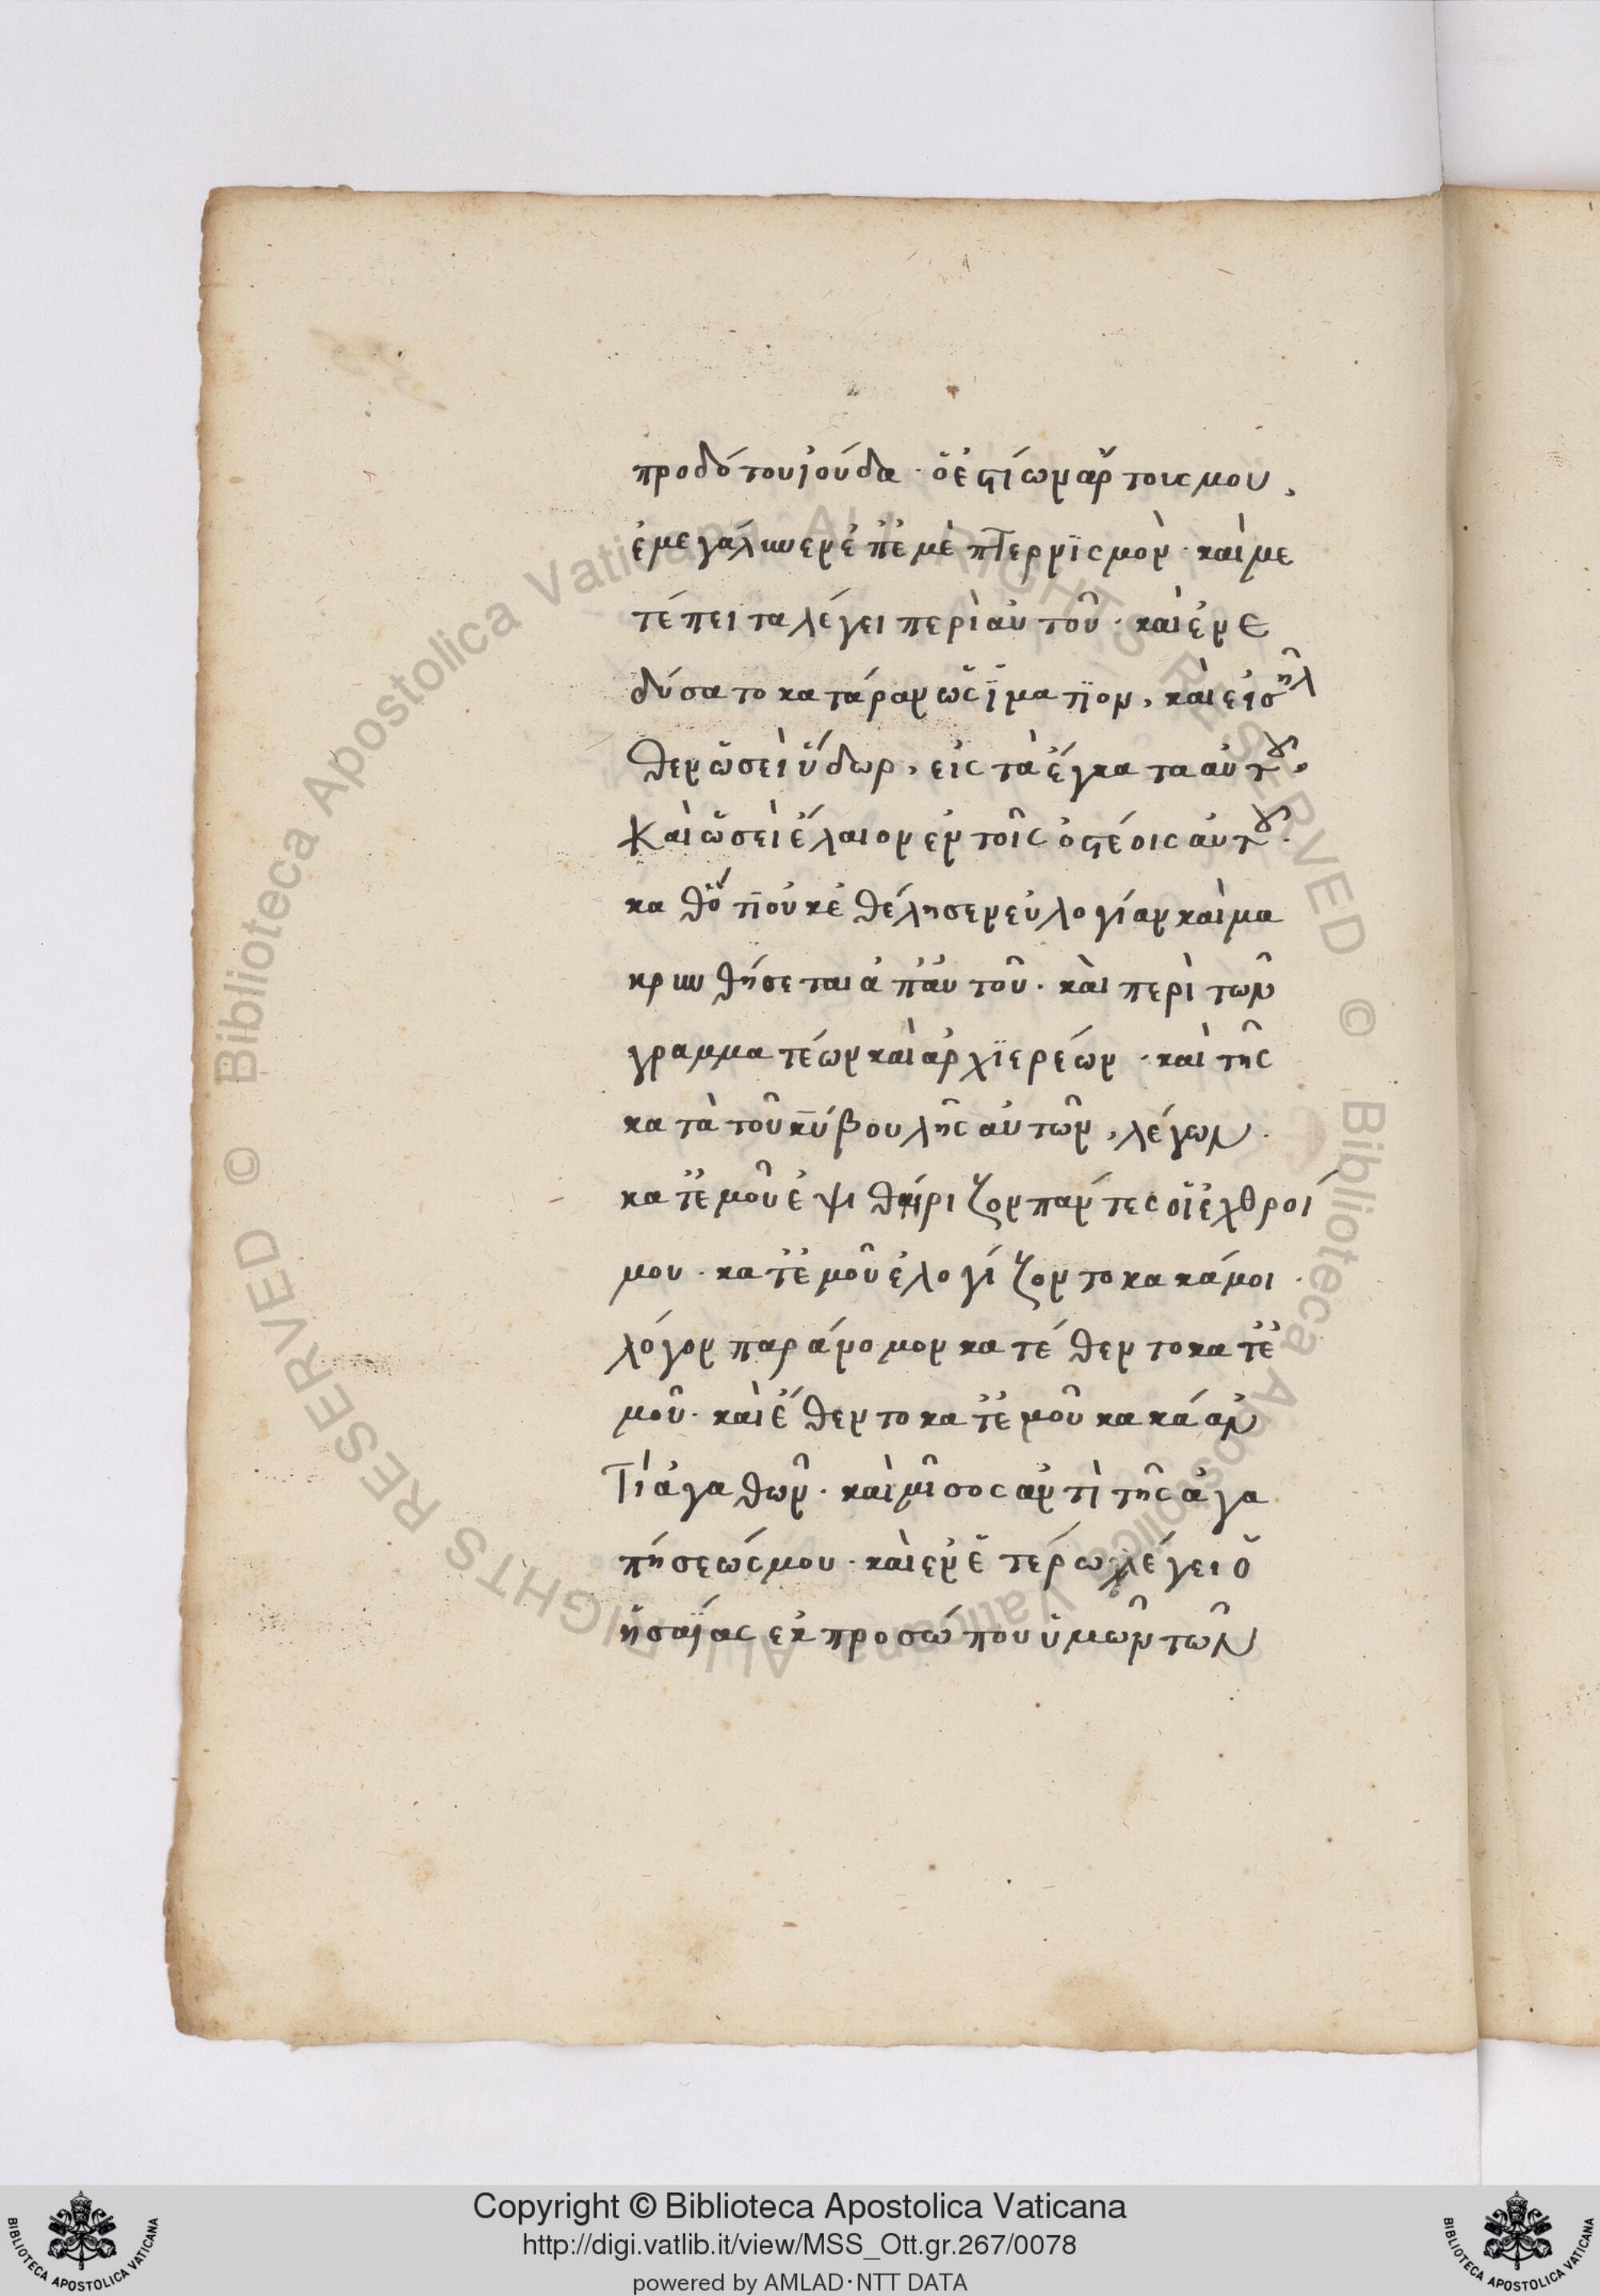 προδότου ἰούδα · ὁ ἐσθίων ἄρτους μου,
ἐμεγάλυνεν ἐπ' ἐμὲ πτερνϊσμὸν · καὶ με
τέπειτα λέγει περὶ αὐτοῦ · καὶ ἐνε
δύσατο κατάραν ὡς ἱμάτϊον, καὶ εἰσῆλ
θεν ὡσεὶ ὕδωρ, εἰς τὰ ἔγκατα αὐτοῦ ·
Καὶ ὡσεὶ ἔλαιον ἐν τοῖς ὀστέοις αὐτοῦ ·
καθότι οὐκ ἐθέλησεν εὐλογίαν καὶ μα
κρυνθήσεται ἀπ' αὐτοῦ · καὶ περὶ τῶν
γραμματέων καὶ ἀρχϊερέων · καὶ τῆς
κατὰ τοῦ κυ βουλῆς αὐτῶν, λέγων ·
κατ' ἐμοῦ ἐψιθύριζον πάντες οἱ ἐχθροί
μου · κατ' ἐμοῦ ἐλογίζοντο κακά μοι ·
λόγον παράνομον κατέθεντο κατ' ἐ
μοῦ · καὶ ἔθεντο κατ' ἐμοῦ κακά ἀν
Τὶ ἀγαθῶν · καὶ μῖσος ἀντὶ τῆς ἀγα
πήσεώς μου · καὶ ἐν ἑτέρω λέγει ὁ
ἡσαΐας ἐκ προσώπου ὑμῶν τῶν
Copyright © Biblioteca Apostolica Vaticana
http://digi.vatlib.it/view/MSS_Ott.gr.267/0078
powered by AMLAD·NTT DATA
BIBLIOTECA APOSTOLICA VATICANA
BIBLIOTECA APOSTOLICA VATICANA
© Biblioteca Apostolica Vaticana ALL RIGHTS RESERVED © Biblioteca Apostolica Vaticana ALL RIGHTS RESERVED